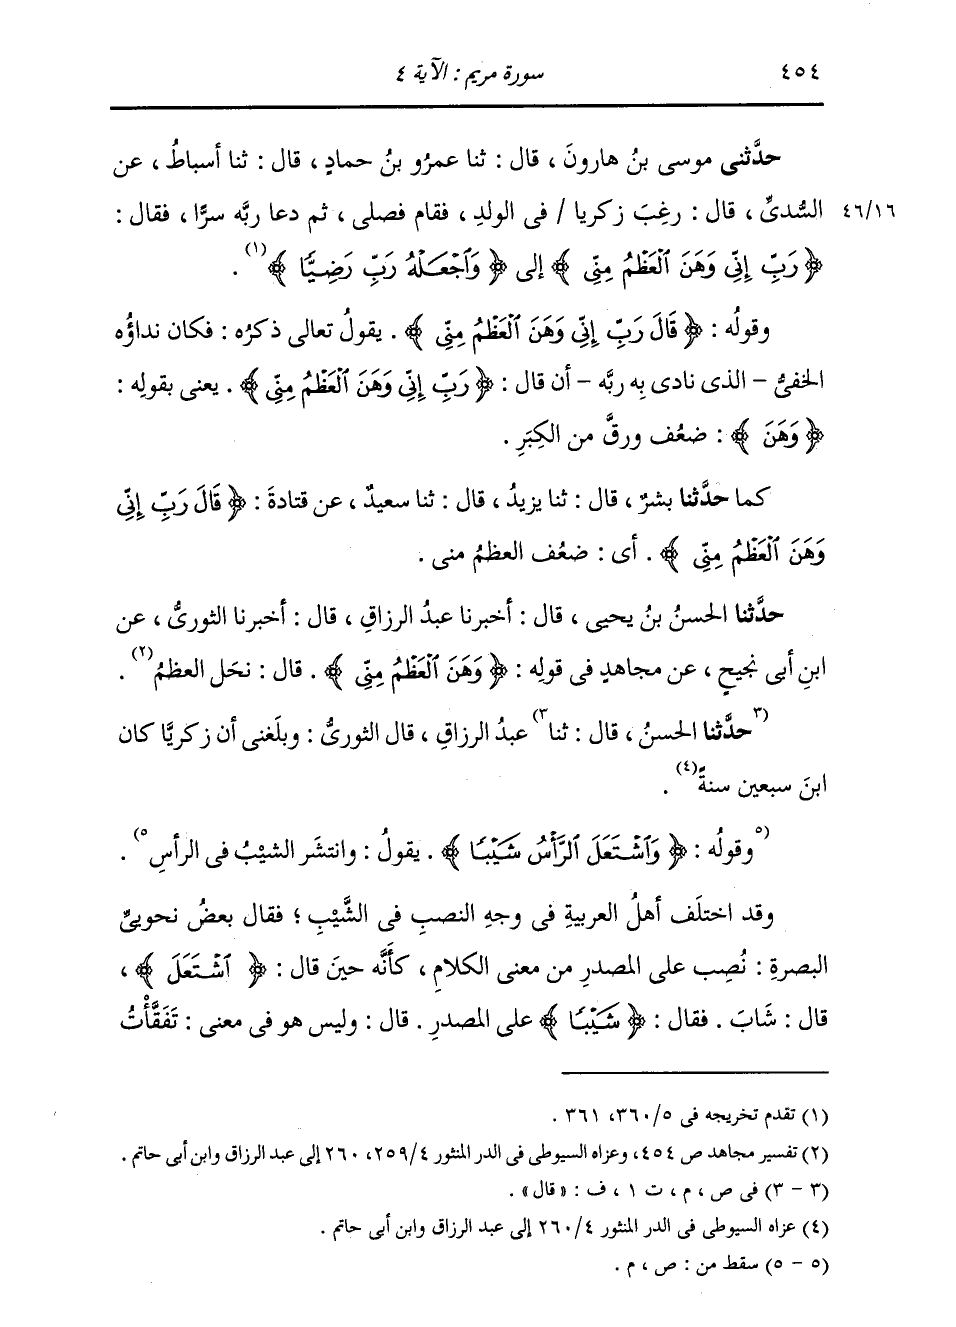 ٤٥٤ سورة مريم : الآية ٤
حدَّثنى موسى بنُ هارونَ ، قال : ثنا عمرُو بنُ حمادٍ ، قال : ثنا أسباطُ ، عن
٤٦/١٦ السُّدىِّ ، قال : رغِبَ زكريا / فى الولدِ ، فقام فصلى ، ثم دعا ربَّه سرًّا ، فقال :
﴿ رَبِّ إِنِّى وَهَنَ ٱلْعَظْمُ مِنِّى ﴾ إلى ﴿ وَٱجْعَلْهُ رَبِّ رَضِيًّا ﴾(١) .
وقولُه : ﴿ قَالَ رَبِّ إِنِّى وَهَنَ ٱلْعَظْمُ مِنِّى ﴾ . يقولُ تعالى ذكرُه : فكان نداؤُه
الخفىُّ - الذى نادى به ربَّه - أن قال : ﴿ رَبِّ إِنِّى وَهَنَ ٱلْعَظْمُ مِنِّى ﴾ . يعنى بقولِه :
﴿ وَهَنَ ﴾ : ضعُف ورقَّ من الكِبَرِ .
كما حدَّثنا بشرٌ ، قال : ثنا يزيدُ ، قال : ثنا سعيدٌ ، عن قتادةَ : ﴿ قَالَ رَبِّ إِنِّى
وَهَنَ ٱلْعَظْمُ مِنِّى ﴾ . أى : ضعُف العظمُ منى .
حدَّثنا الحسنُ بنُ يحيى ، قال : أخبرنا عبدُ الرزاقِ ، قال : أخبرنا الثورىُّ ، عن
ابنِ أبى نجيحٍ ، عن مجاهدٍ فى قولِه : ﴿ وَهَنَ ٱلْعَظْمُ مِنِّى ﴾ . قال : نحَل العظمُ(٢) .
(٣حدَّثنا الحسنُ ، قال : ثنا٣) عبدُ الرزاقِ ، قال الثورىُّ : وبلَغنى أن زكريَّا كان
ابنَ سبعين سنةً(٤) .
(٥وقولُه : ﴿ وَٱشْتَعَلَ ٱلرَّأْسُ شَيْبًا ﴾ . يقولُ : وانتشَر الشيْبُ فى الرأسِ٥) .
وقد اختلَف أهلُ العربيةِ فى وجهِ النصبِ فى الشَّيْبِ ؛ فقال بعضُ نحويِىِّ
البصرةِ : نُصِب على المصدرِ من معنى الكلامِ ، كأنَّه حينَ قال : ﴿ ٱشْتَعَلَ ﴾ ،
قال : شَابَ . فقال : ﴿ شَيْبًا ﴾ على المصدرِ . قال : وليس هو فى معنى : تَفَقَّأْتُ
(١) تقدم تخريجه فى ٣٦٠/٥، ٣٦١ .
(٢) تفسير مجاهد ص ٤٥٤، وعزاه السيوطى فى الدر المنثور ٢٥٩/٤، ٢٦٠ إلى عبد الرزاق وابن أبى حاتم .
(٣ - ٣) فى ص ، م ، ت ١ ، ف : « قال » .
(٤) عزاه السيوطى فى الدر المنثور ٢٦٠/٤ إلى عبد الرزاق وابن أبى حاتم .
(٥ - ٥) سقط من : ص ، م .